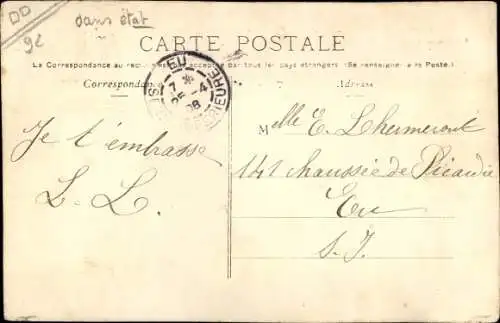 DD
92
dans état
CARTE POSTALE
La Correspondance au recto est acceptée par tous les pays étrangers (Se renseigner à la Poste.)
Correspondance
Adresse
EU
7
25 - 4
08
SEINE INFÉRIEURE
Je t'embrasse
L. L.
Melle E. Lhermeroult
141 chaussée de Picardie
Eu
S. I.